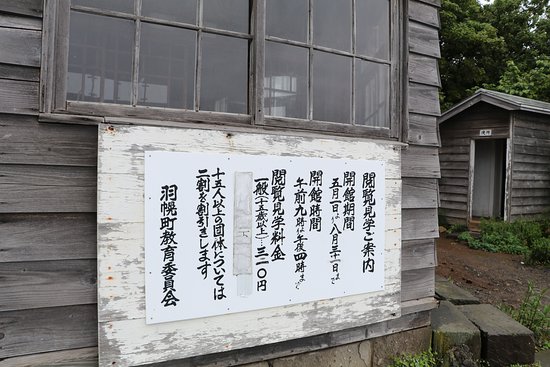 閲覧見学ご案内
開館期間
五月一日から八月三十一日まで
開館時間
午前九時から午後四時まで
閲覧見学料金
一般(十五歳以上)三一〇円
十五人以上の団体については
二割を割引きします
羽幌町教育委員会
便所